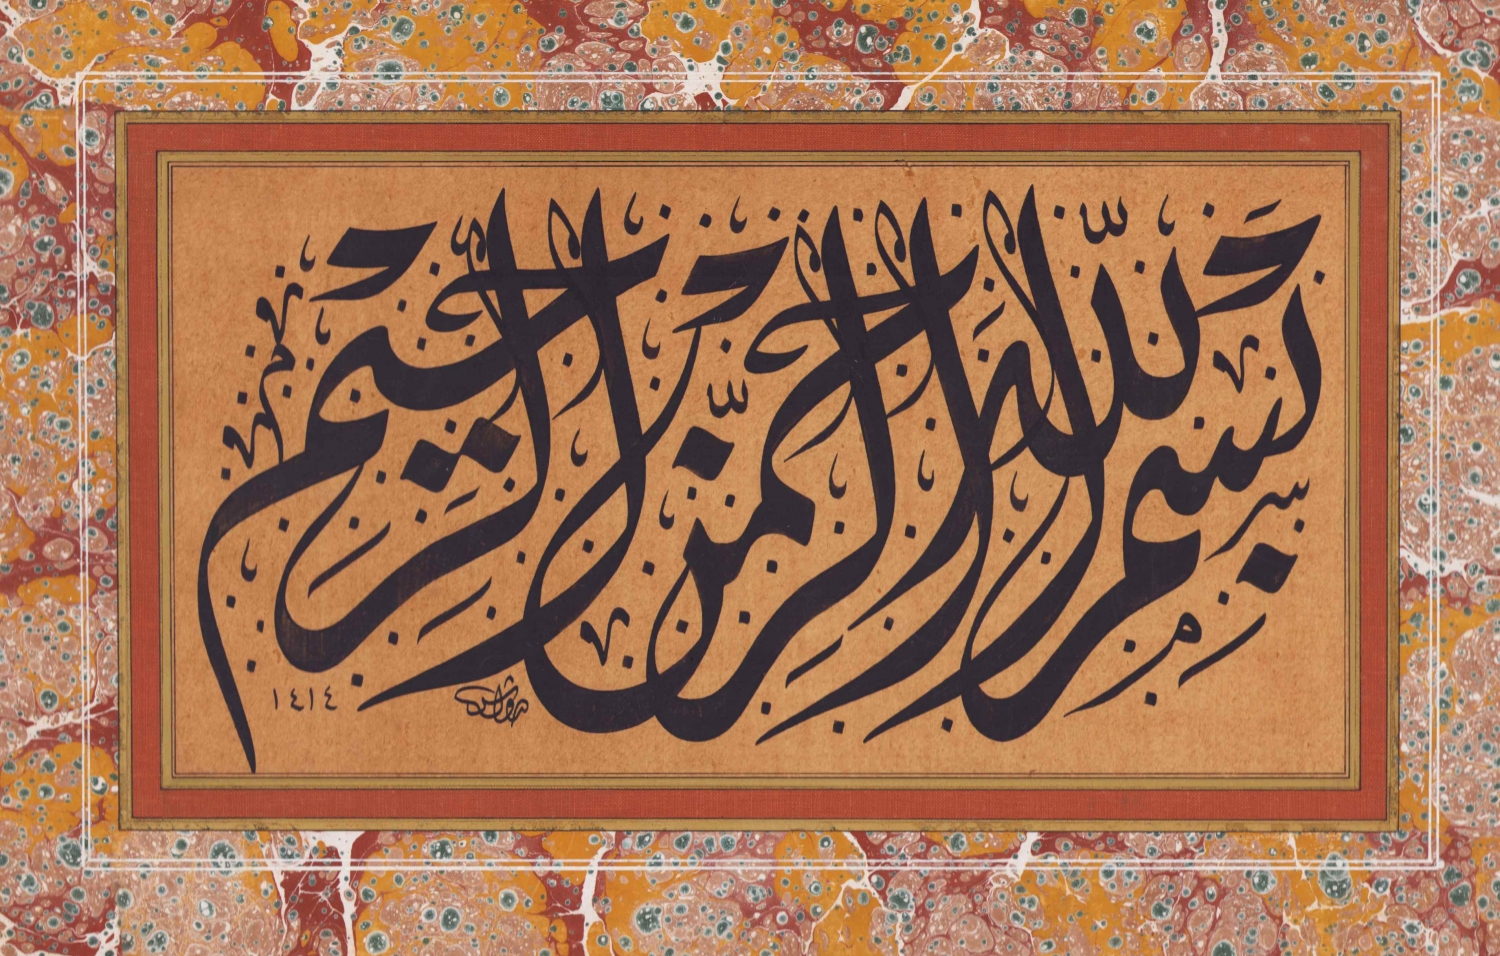 بسم الله الرحمن الرحيم
١٤١٤